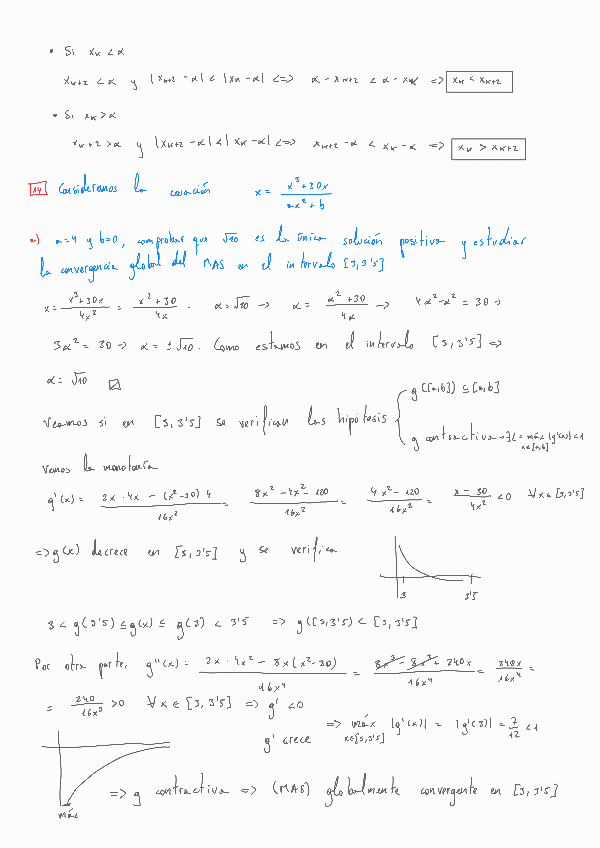 • Si xₖ < α
xₖ₊₂ < α y |xₖ₊₂ - α| < |xₖ - α| <=> α - xₖ₊₂ < α - xₖ => xₖ < xₖ₊₂
• Si xₖ > α
xₖ₊₂ > α y |xₖ₊₂ - α| < |xₖ - α| <=> xₖ₊₂ - α < xₖ - α => xₖ > xₖ₊₂
14 Consideramos la ecuación x = (x³+30x)/(ax²+b)
a) a=4 y b=0, comprobar que √10 es la única solución positiva y estudiar
la convergencia global del MAS en el intervalo [3,3'5]
x = (x³+30x)/(4x²) = (x²+30)/(4x) . α=√10 -> α = (α²+30)/(4α) -> 4α²-α² = 30 ->
3α² = 30 -> α = ±√10. Como estamos en el intervalo [3,3'5] =>
α = √10
Veamos si en [3,3'5] se verifican las hipótesis { g([a,b]) ⊆ [a,b]
g contractiva -> ∃L = máx |g'(x)| < 1
x∈[a,b]
Vemos la monotonía
g'(x) = (2x · 4x - (x²-30) 4)/(16x²) = (8x² - 4x² - 120)/(16x²) = (4x² - 120)/(16x²) = (x - 30)/(4x²) < 0 ∀x∈[3,3'5]
=> g(x) decrece en [3,3'5] y se verifica.
3 3'5
3 < g(3'5) ≤ g(x) ≤ g(3) < 3'5 => g([3,3'5]) ⊂ [3,3'5]
Por otra parte, g''(x) = (2x · 4x² - 8x(x²-30))/(16x⁴) = (8x³ - 8x³ + 240x)/(16x⁴) = 240x/(16x⁴) =
= 240/(16x³) > 0 ∀x∈[3,3'5] => g' < 0
g' crece => máx |g'(x)| = |g'(3)| = 7/12 < 1
x∈[3,3'5]
máx
=> g contractiva => (MAS) globalmente convergente en [3,3'5]